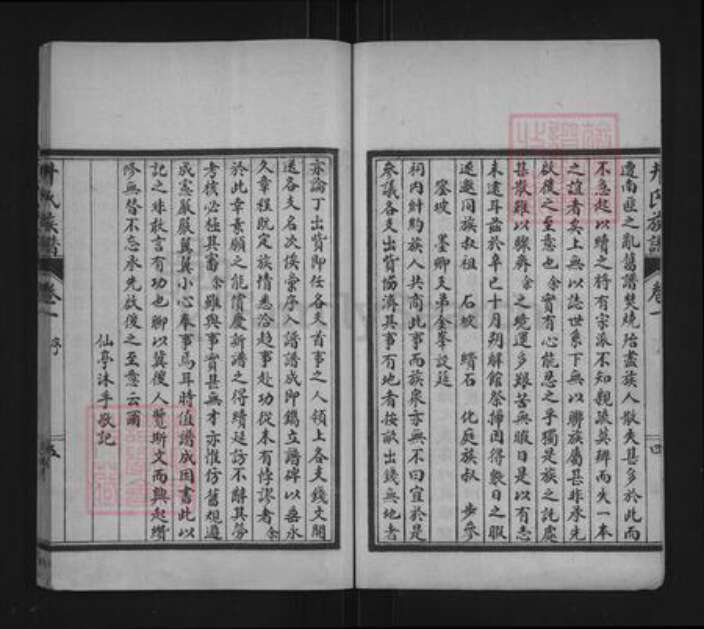 遭南匪之亂舊譜焚燒殆盡族人散失甚多於此而
不急起以續之將有宗派不知親疏莫辨而失一本
之誼者矣上無以誌世系下無以聯族屬甚非承先
啟後之至意也余實有心能忍之乎獨是族之託處
甚散難以驟齊余之境遇多艱苦無暇日是以有志
未逮耳茲於辛巳十月朔解館祭掃因得數日之暇
遂邀同族叔祖 石坡 績石 化庭族叔 步參
鑾坡 墨卿又弟金峯設筵
祠內計約族人共商此事而族衆亦無不曰宜於是
參議各支出貲協濟其事有地者按畝出錢無地者
亦論丁出貲即任各支首事之人領上各支錢文開
送各支名次俟彙序入譜譜成即鐫立譜碑以垂永
久章程既定族情悉洽趋事赴功從未有悖謬者余
於此幸素願之能償慶新譜之得續延訪不辭其勞
考核必極其審余雖與事實甚無才亦惟仿舊規遵
成憲嚴嚴翼翼小心奉事焉耳時值譜成因書此以
記之非敢言有功也聊以冀後人覽斯文而興起續
修無替不忘承先啟後之至意云爾
仙亭沐手敬記
尹氏族譜 卷一 四
尹氏族譜 卷一 序 五